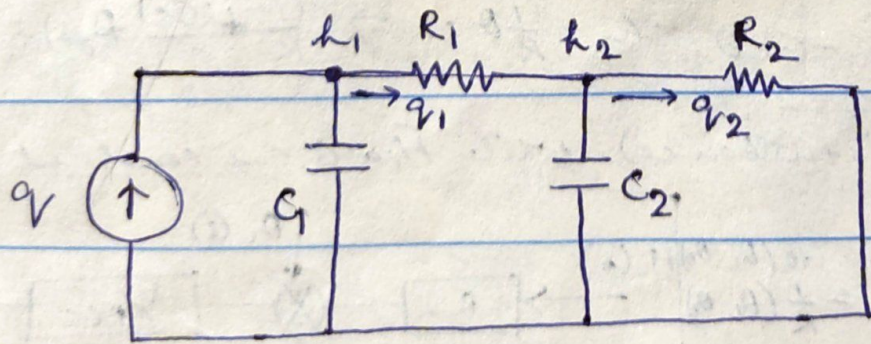 h₁ R₁ h₂ R₂
q₁ q₂
q C₁ C₂.